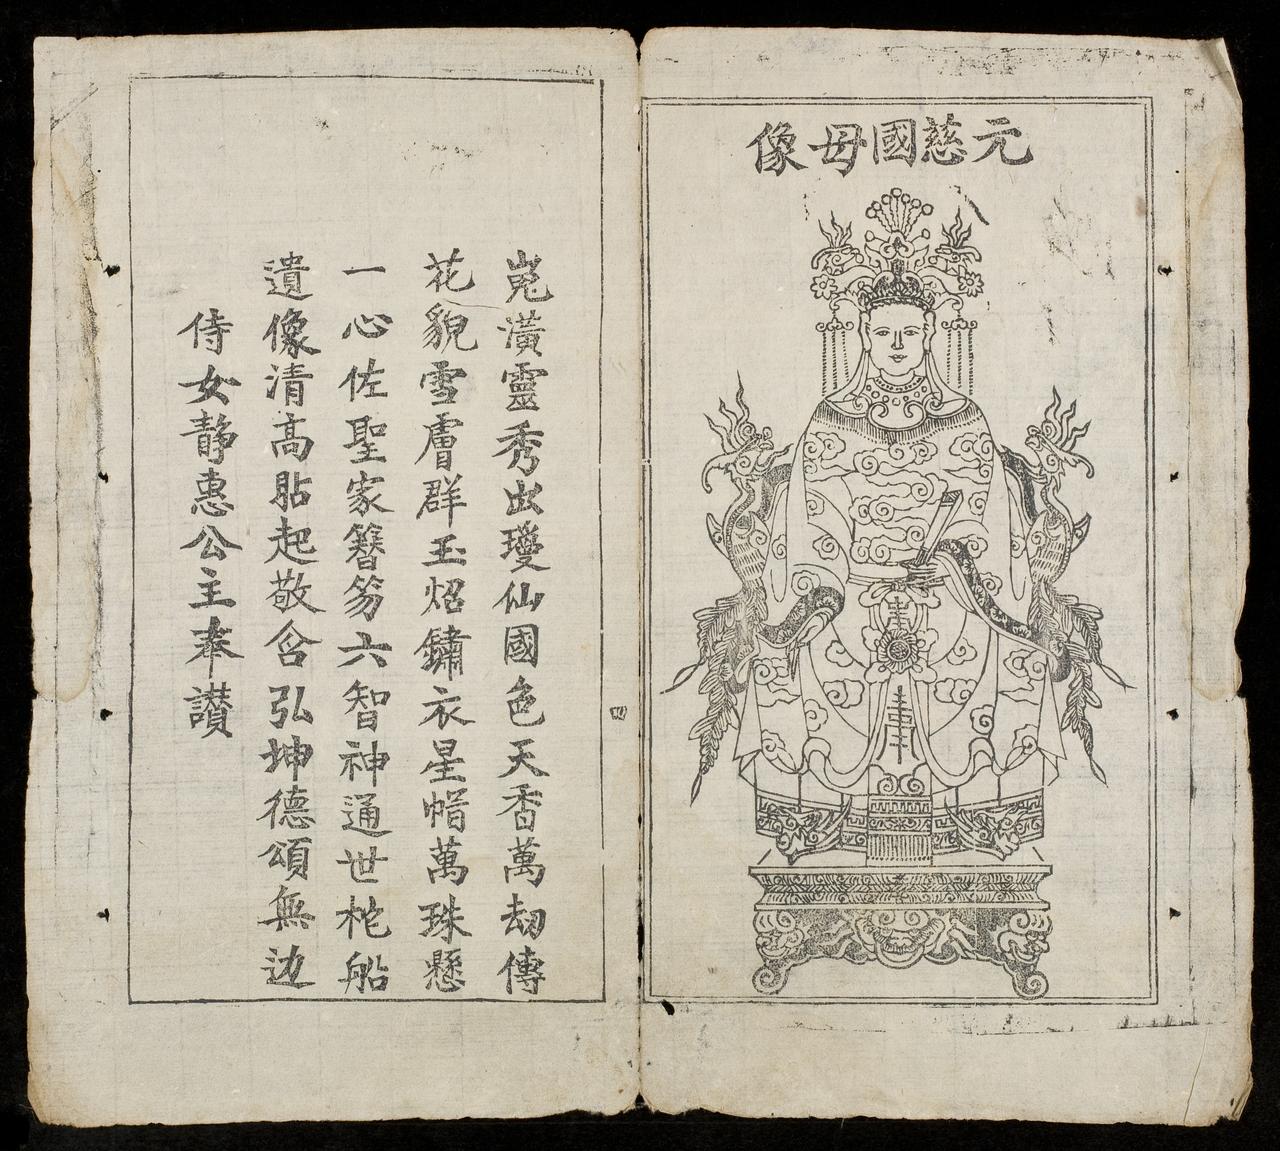 元慈國毋像
嵬潢靈秀出瓊仙國色天香萬刼傳
花貌雪膚群玉炤鏽衣星帽萬珠懸
一心佐聖家簪笏六智神通世柁船
遺像清髙貼起敬含弘坤德頌無边
侍女靜惠公主奉讃
四